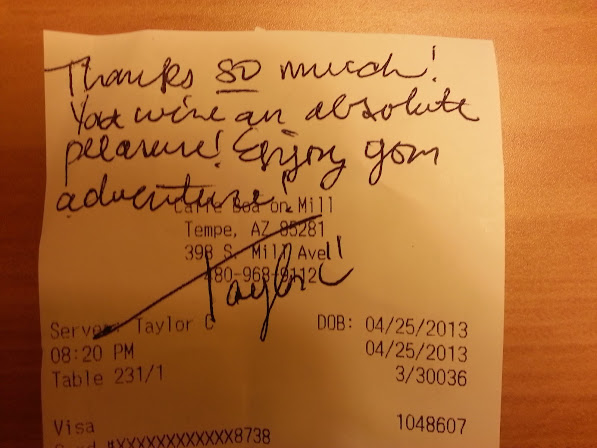 Thanks so much!
You were an absolute
pleasure! Enjoy your
adventure!
Caffe Boa on Mill
Tempe, AZ 85281
398 S. Mill Ave
480-968-9112
Taylor
Server: Taylor C DOB: 04/25/2013
08:20 PM 04/25/2013
Table 231/1 3/30036
Visa 1048607
Card #XXXXXXXXXXXX8738